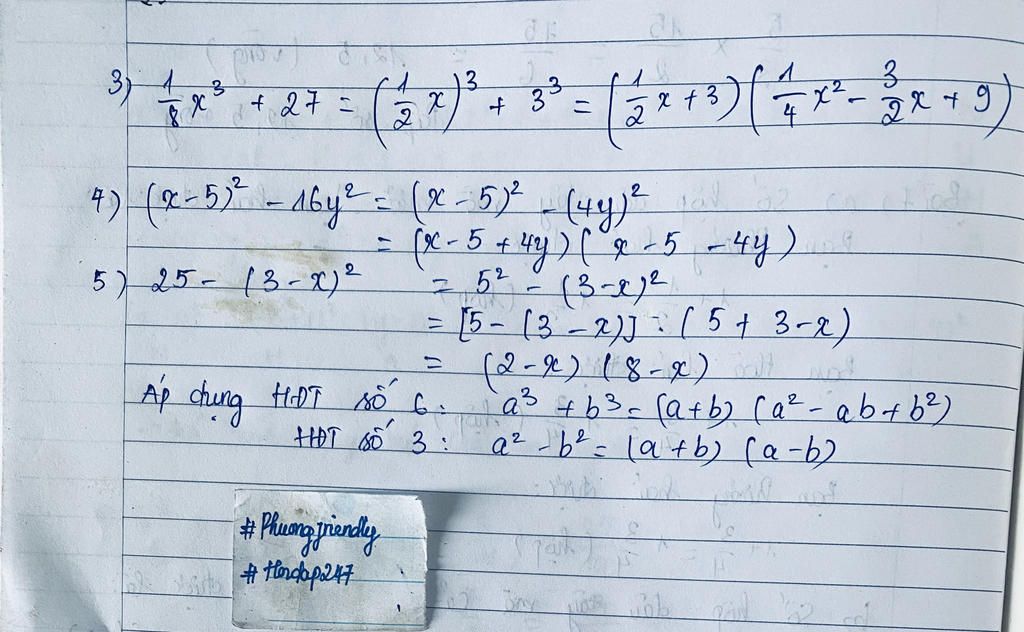 3) 1/8 x³ + 27 = (1/2 x)³ + 3³ = (1/2 x + 3) (1/4 x² - 3/2 x + 9)
4) (x - 5)² - 16y² = (x - 5)² - (4y)²
= (x - 5 + 4y) (x - 5 - 4y)
5) 25 - (3 - x)² = 5² - (3 - x)²
= [5 - (3 - x)] . (5 + 3 - x)
= (2 - x) (8 - x)
Áp dụng HĐT số 6 : a³ + b³ = (a + b) (a² - ab + b²)
HĐT số 3 : a² - b² = (a + b) (a - b)
#Phuongfriendly
#Hoidap247